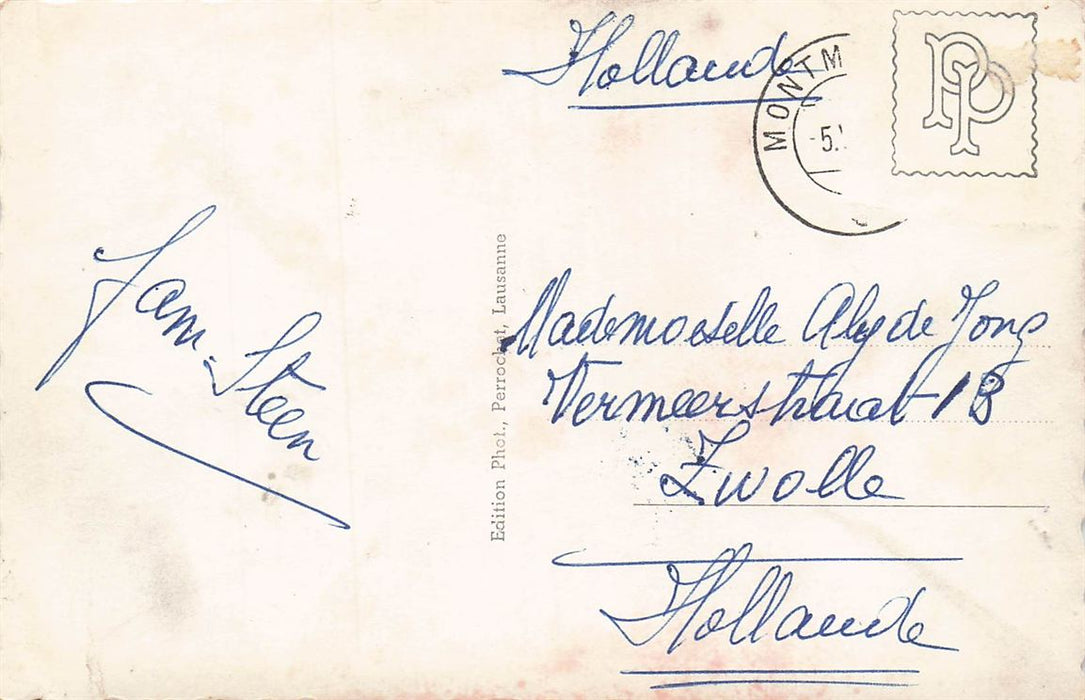 Hollande
MONTM
-5.
PP
Fam. Steen
Edition Phot., Perrochet, Lausanne
Mademoiselle Aly de Jong
Vermeerstraat 1B
Zwolle
Hollande